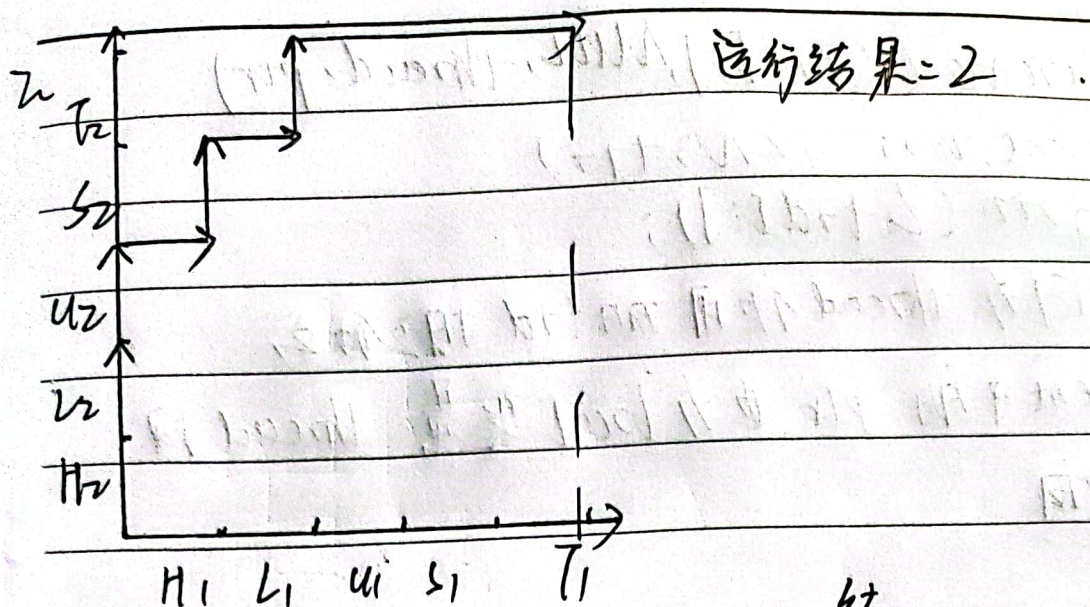 运行结果=2
T2
S2
U2
L2
H2
H1 L1 U1 S1 T1